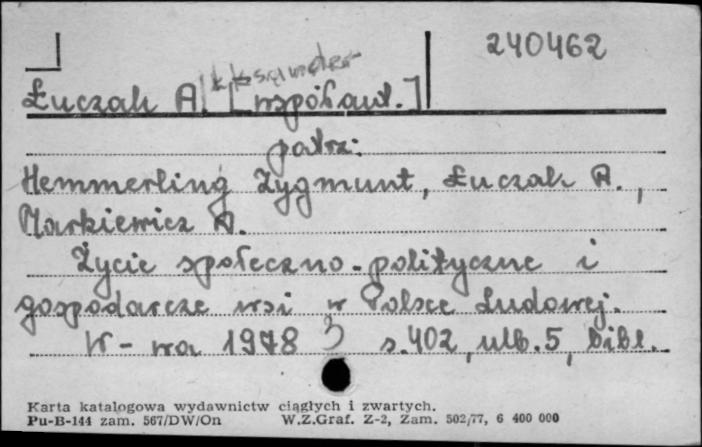 240462
Aleksander
Łuczak A. [współaut.]
patrz:
Hemmerling Zygmunt, Łuczak A.,
Markiewicz W.
Życie społeczno-polityczne i
gospodarcze wsi w Polsce Ludowej.
W-wa 1978 s. 402, nlb. 5, bibl.
Karta katalogowa wydawnictw ciągłych i zwartych.
Pu-B-144 zam. 567/DW/On W.Z.Graf. Z-2, Zam. 502/77, 6 400 000